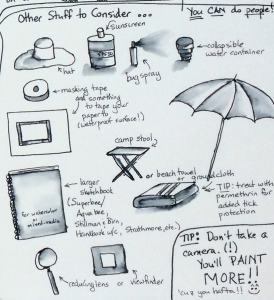 You CAN do people!
Other Stuff to Consider ...
sunscreen
hat
bug spray
collapsible
water container
masking tape
and something
to tape your
paper to
(waterproof surface!)
camp stool
or beach towel
or groundcloth
larger
sketchbook
(Superbee/
Aquabee,
Stillman & Birn,
Handbook w/c, Strathmore, etc.)
for watercolor
or mixed-media
TIP: treat with
permethrin for
added tick
protection
TIP: Don't take a
camera. (!)
You'll PAINT
MORE!!
'cuz you hafta!!
reducing lens or viewfinder